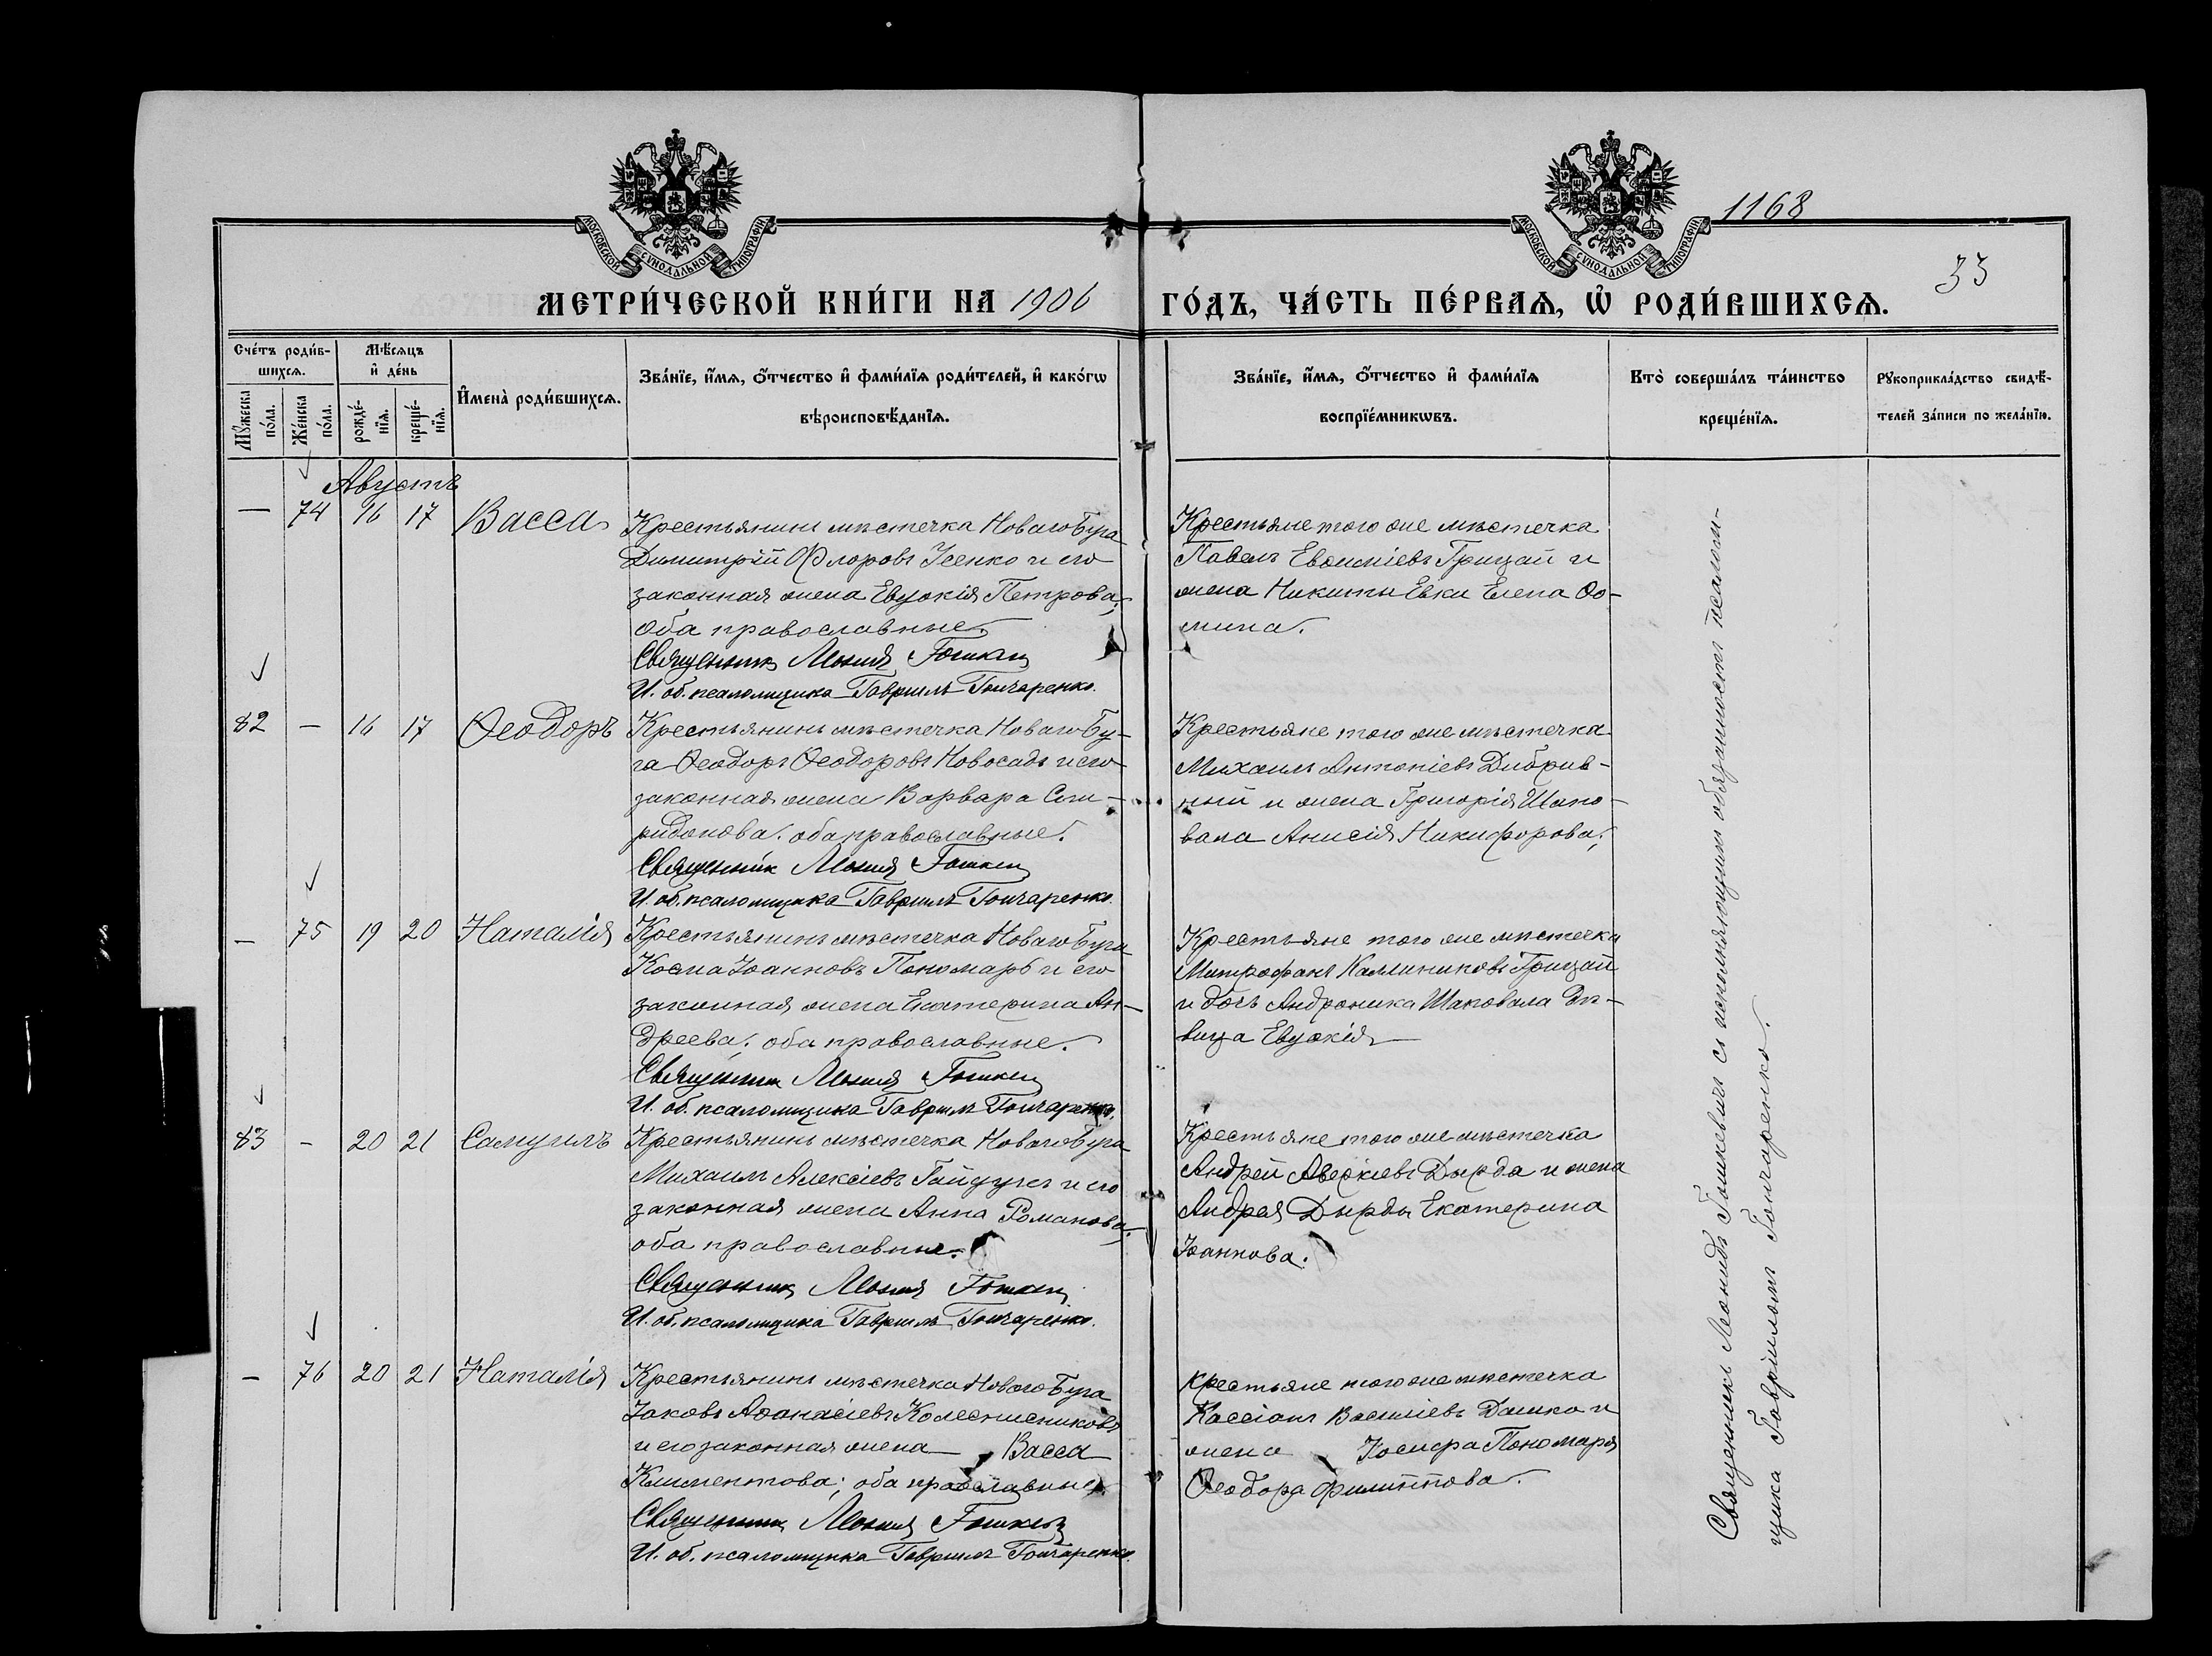 МОСКОВСКОЙ СѴНОДАЛЬНОЙ ТИПОГРАФІИ
МОСКОВСКОЙ СѴНОДАЛЬНОЙ ТИПОГРАФІИ
1168
33
МЕТРИ́ЧЕСКОЙ КНИ́ГИ НА 1906 ГО́ДЪ, ЧА́СТЬ ПЕ́РВАЯ, Ѡ҆ РОДИ́ВШИХСЯ.
Сче́тъ роди́в-
шихся.
Мѣ́сяцъ
и҆ де́нь
Мꙋ́жеска
по́ла.
Же́нска
по́ла.
рожде́-
нїя.
креще́-
нїя.
И҆мена̀ роди́вшихся.
Зва́нїе, и҆́мя, ѻ҆́тчество и҆ фами́лїя роди́телей, и҆ како́гѡ
вѣроисповѣ́данїя.
Зва́нїе, и҆́мя, ѻ҆́тчество и҆ фами́лїя
воспрїе́мникѡвъ.
Кто̀ соверша́лъ та́инство
креще́нїя.
Рꙋкоприкла́дство свидѣ́-
телей за́писи по жела́нїю.
Августъ
— 74 16 17 Васса
Крестьянинъ мѣстечка Новаго Буга
Димитрій Флоровъ Усенко и его
законная жена Евдокія Петрова;
оба православные.
Священникъ Леонидъ Гошкев
И. об. псаломщика Гавріилъ Гончаренко.
Крестьяне того же мѣстечка
Павелъ Евѳиміевъ Грицай и
жена Никиты Евки Елена Ѳо-
мина.
82 — 16 17 Ѳеодоръ
Крестьянинъ мѣстечка Новаго Бу-
га Ѳеодоръ Ѳеодоровъ Новосадъ и его
законная жена Варвара Спи-
ридонова; оба православные.
Священник Леонид Гошкев
И. об. псаломщика Гавріилъ Гончаренко.
Крестьяне того же мѣстечка
Михаилъ Антоніевъ Дибрив-
ный и жена Григорія Шапо-
вала Анисія Никифорова;
— 75 19 20 Наталія
Крестьянинъ мѣстечка Новаго Буга
Косма Іоанновъ Пономарь и его
законная жена Екатерина Ан-
дреева; оба православные.
Священник Леонид Гошкев
И. об. псаломщика Гавріилъ Гончаренко.
Крестьяне того же мѣстечка
Митрофанъ Каллиниковъ Грицай
и дочь Андроника Шаповала дѣ-
вица Евдокія
83 - 20 21 Самуилъ
Крестьянинъ мѣстечка Новаго Буга
Михаилъ Алексіевъ Гайдукъ и его
законная жена Анна Романова;
оба православные.
Священник Леонид Гошкев
И. об. псаломщика Гавріилъ Гончаренко.
Крестьяне того же мѣстечка
Андрей Аверкіевъ Дырда и жена
Андрея Дырды Екатерина
Іоаннова.
— 76 20 21 Наталія
Крестьянинъ мѣстечка Новаго Буга
Іаковъ Аѳанасіевъ Колесниковъ
и его законная жена Васса
Климентова; оба православные
Священник Леонид Гошкев
И. об. псаломщика Гавріилъ Гончаренко.
крестьяне того же мѣстечка
Кассіанъ Василіевъ Дашко и
жена Іосифа Пономаря
Ѳеодора Филиппова.
Священникъ Леонидъ Гошкевичъ съ исполняющимъ обязанности псалом-
щика Гавріиломъ Гончаренко.